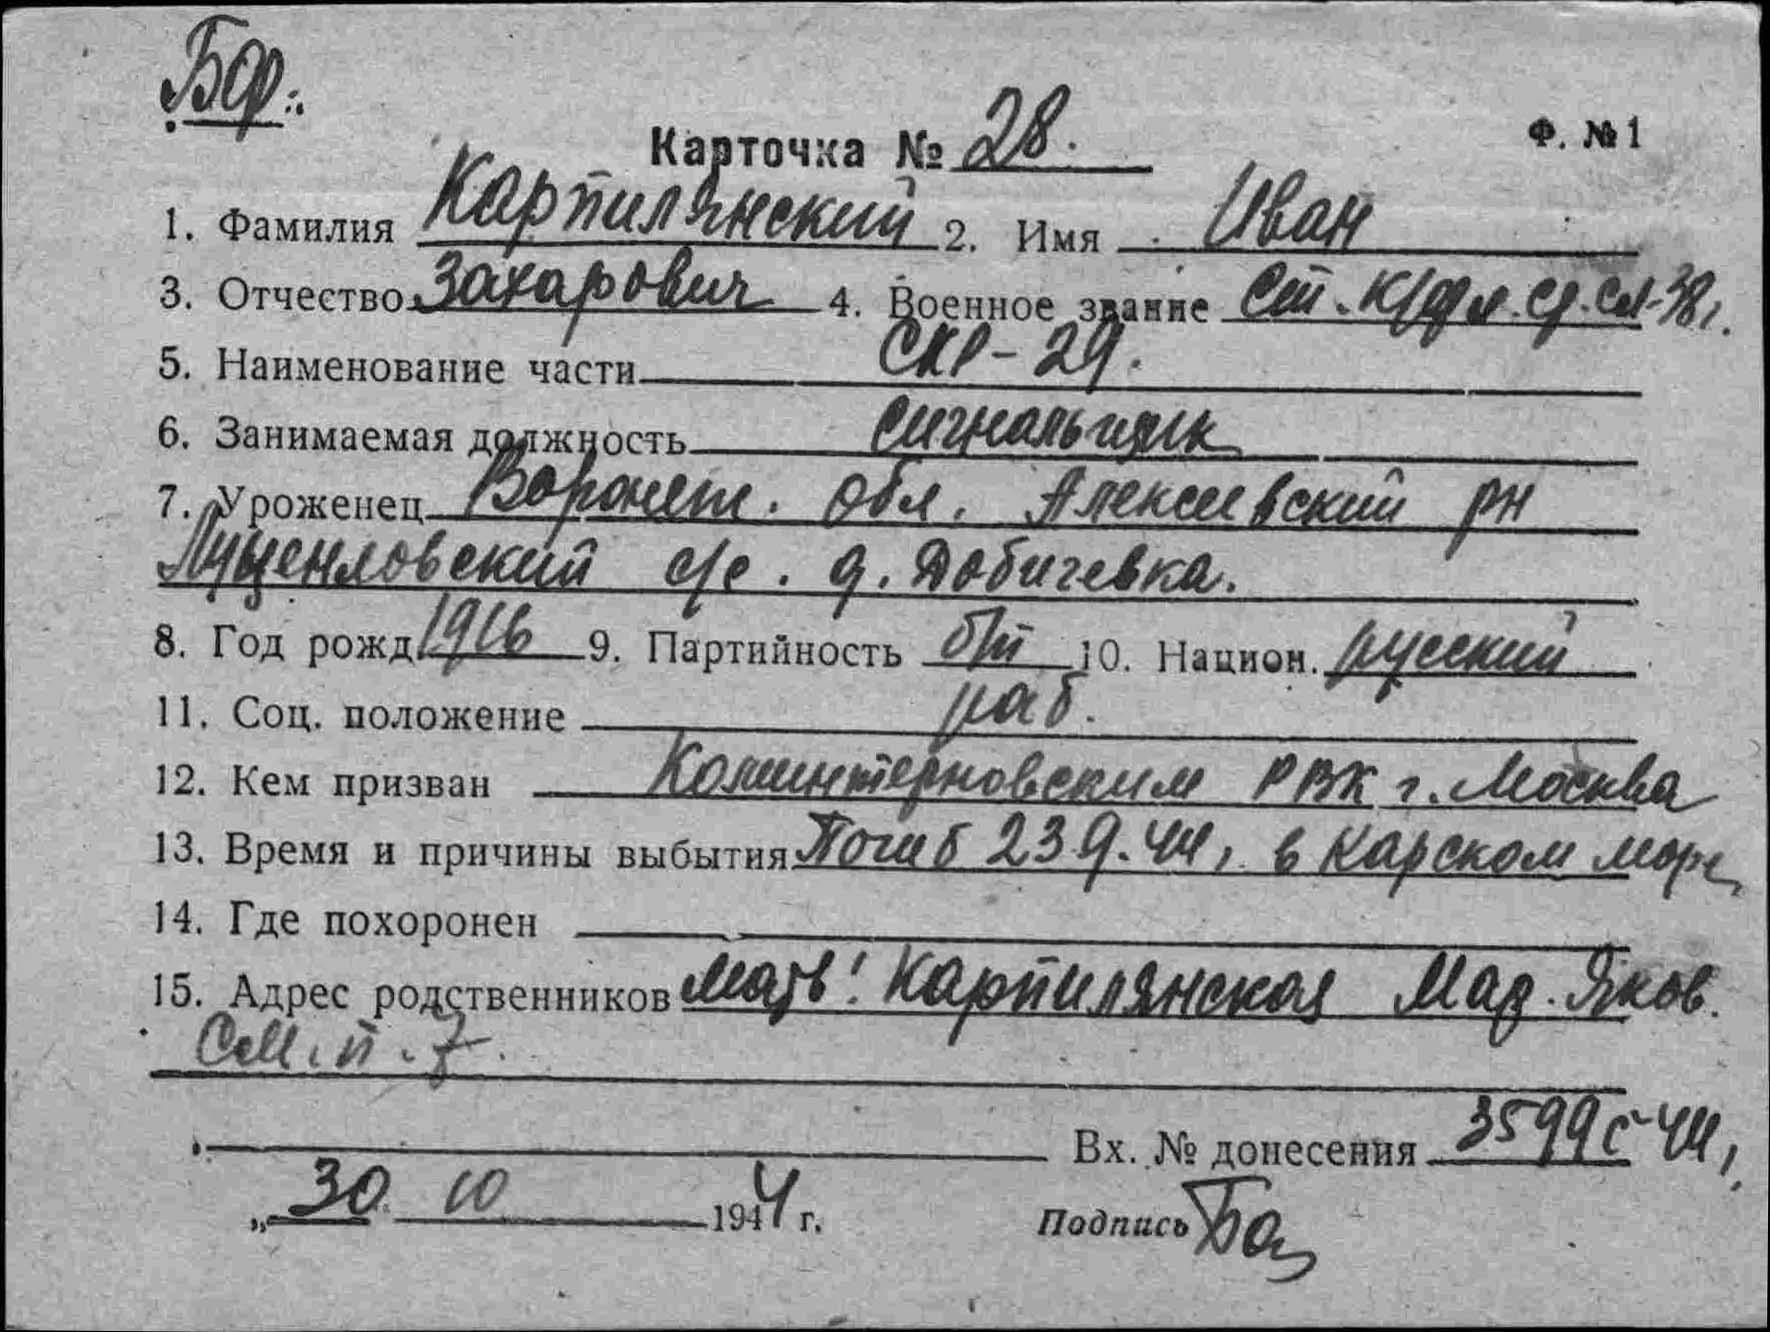 Бар.
Карточка № 28.
Ф. №1
1. Фамилия Карпилянский 2. Имя Иван
3. Отчество Захарович 4. Военное звание Ст. к/фл. ср. сл-38г.
5. Наименование части СКР-29.
6. Занимаемая должность сигнальщик
7. Уроженец Воронеж. обл. Алексеевский рн
с/с. д. Добичевка.
8. Год рожд 1916 9. Партийность б/п 10. Национ. русский
11. Соц. положение раб.
12. Кем призван Коминтерновским РВК г. Москва
13. Время и причины выбытия Погиб 23 9. 44г. в Карском море
14. Где похоронен
15. Адрес родственников мать: Карпилянская Мар. Яков.
См. п. 7.
Вх. № донесения 3599с-44г.
„ 30 10 1944 г.
Подпись